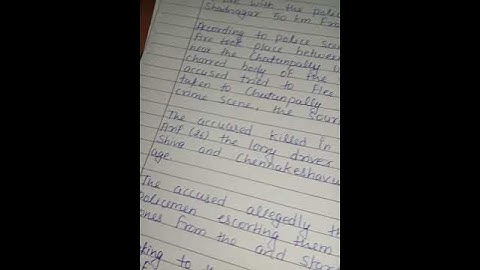 with the police
Shadnagar 50 km from
According to police
fire took place between
near the Chatanpally
charred body of the
accused tried to flee
taken to Chatanpally
crime scene, the
The accuased killed in
Arif (26) the lorry driver
Shiva and Chennakeshavu
age.
The accused allegedly
policemen escorting them
from the and
to